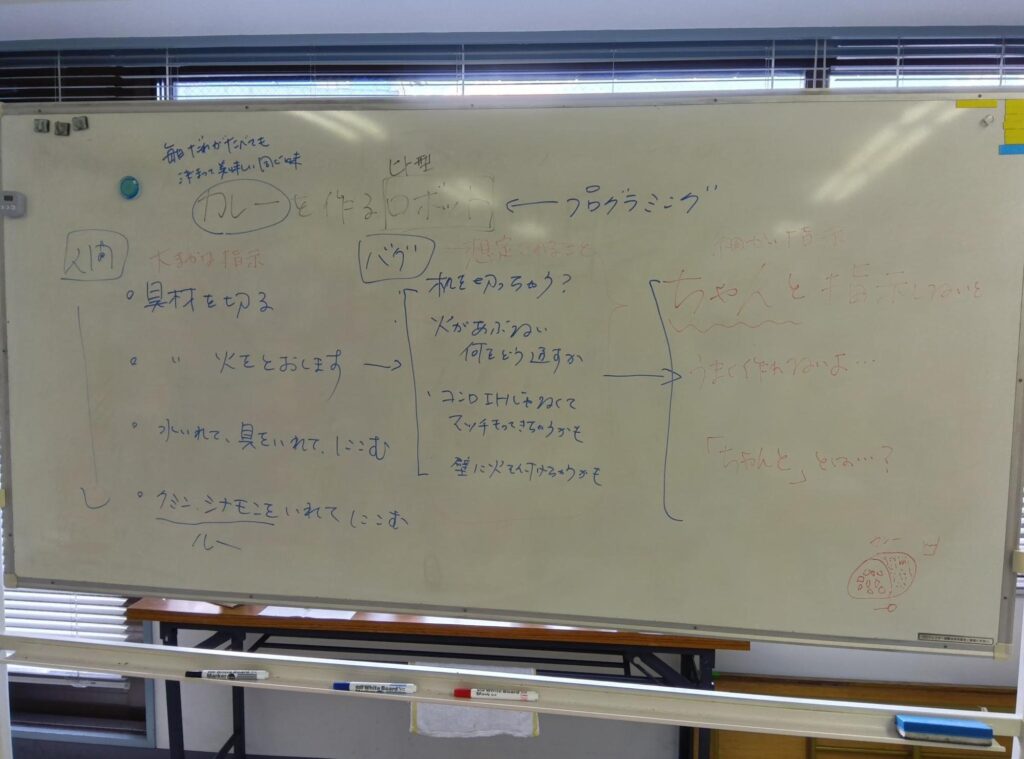 毎日だれがたべても
決まって美味しい同じ味
ヒト型
カレーを作るロボット ← プログラミング
人間
大まかな指示
・具材を切る
・〃 火をとおします →
・水いれて、具をいれて、にこむ
・クミン、シナモンをいれてにこむ
ルー
バグ
想定されること
机を切っちゃう?
火があぶない
何をどう通すか
・コンロIHじゃなくて
マッチもってきちゃうかも
壁に火をつけちゃうかも
→
細かい指示
ちゃんと指示しないと
うまく作れないよ…
「ちゃんと」とは…?
カレー
White Board
Marker
White Board
White Board